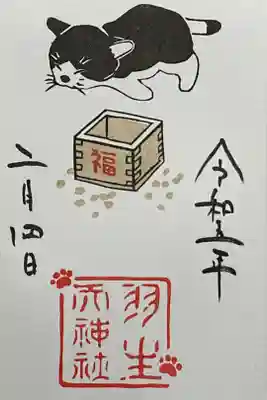 令和五年
福
羽生
天神社
二月四日